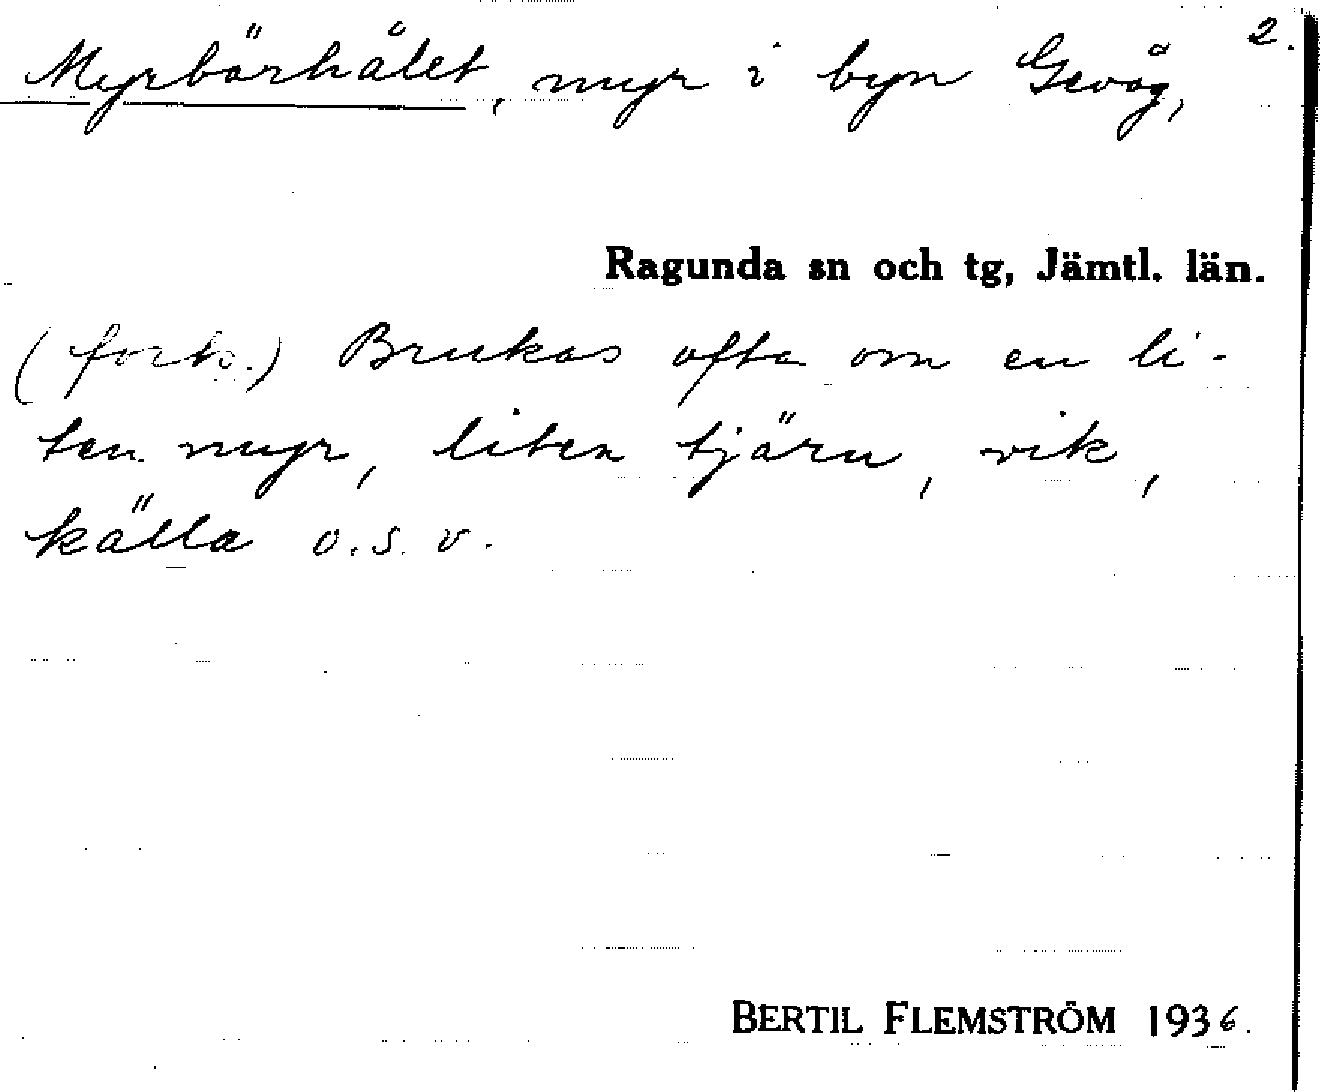 2.
Myrbärhålet, myr i byn Gevåg,
Ragunda sn och tg, Jämtl. län.
(forts.) Brukas ofta om en li-
ten myr, liten tjärn, vik,
källa o.s.v.
BERTIL FLEMSTRÖM 1936.